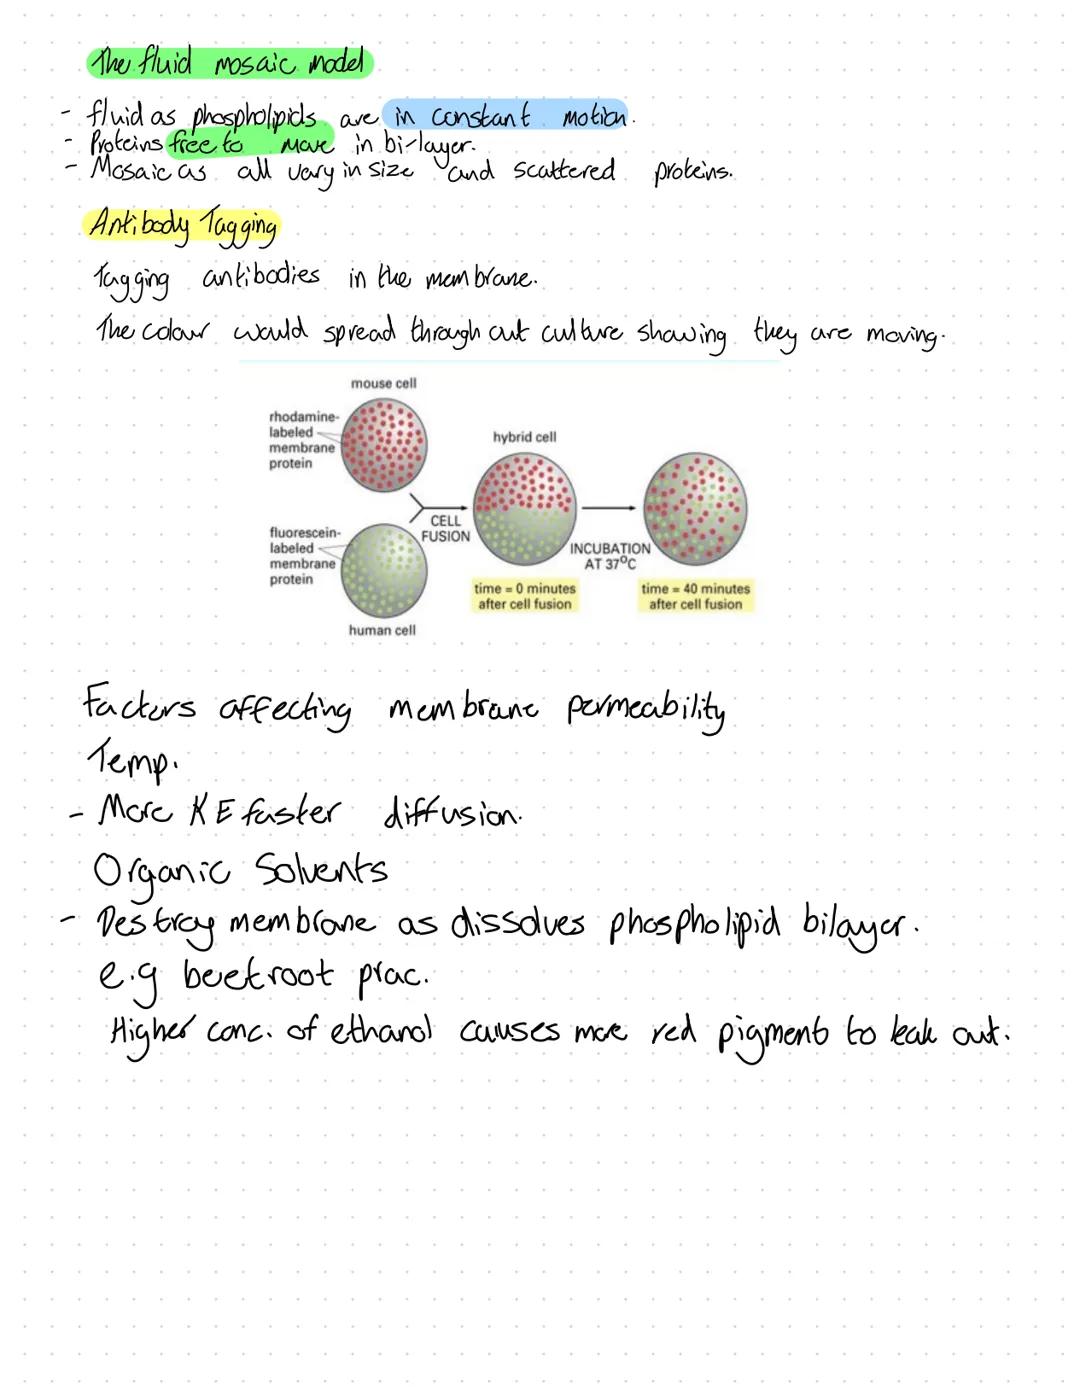 The fluid mosaic model
- fluid as phospholipids are in constant motion.
- Proteins free to move in bi-layer.
- Mosaic as all vary in size and scattered proteins.
Antibody Tagging
Tagging antibodies in the membrane.
The colour would spread throughout culture showing they are moving.
mouse cell
rhodamine-
labeled
membrane
protein
hybrid cell
CELL
FUSION
fluorescein-
labeled
membrane
protein
INCUBATION
AT 37°C
time = 0 minutes
after cell fusion
time = 40 minutes
after cell fusion
human cell
Factors affecting membrane permeability
Temp.
- More KE faster diffusion.
Organic Solvents
- Destroy membrane as dissolves phospholipid bilayer.
e.g beetroot prac.
Higher conc. of ethanol causes more red pigment to leak out.